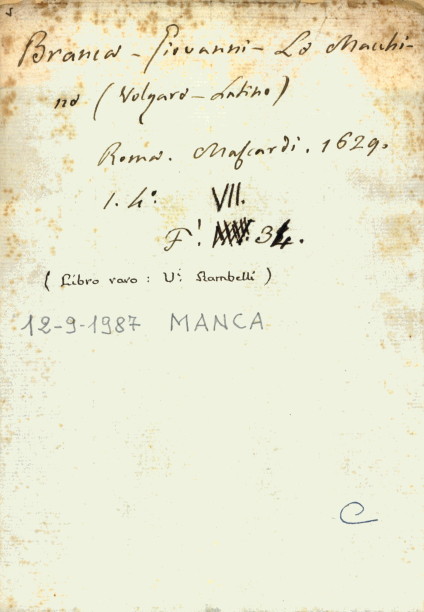 Branca - Giovanni - Le Macchi-
ne (Volgare - Latino)
Roma. Mascardi. 1629.
1. 4º.
VII.
F! 34.
(Libro raro: Vi Rambelli)
12-9-1987 MANCA
C